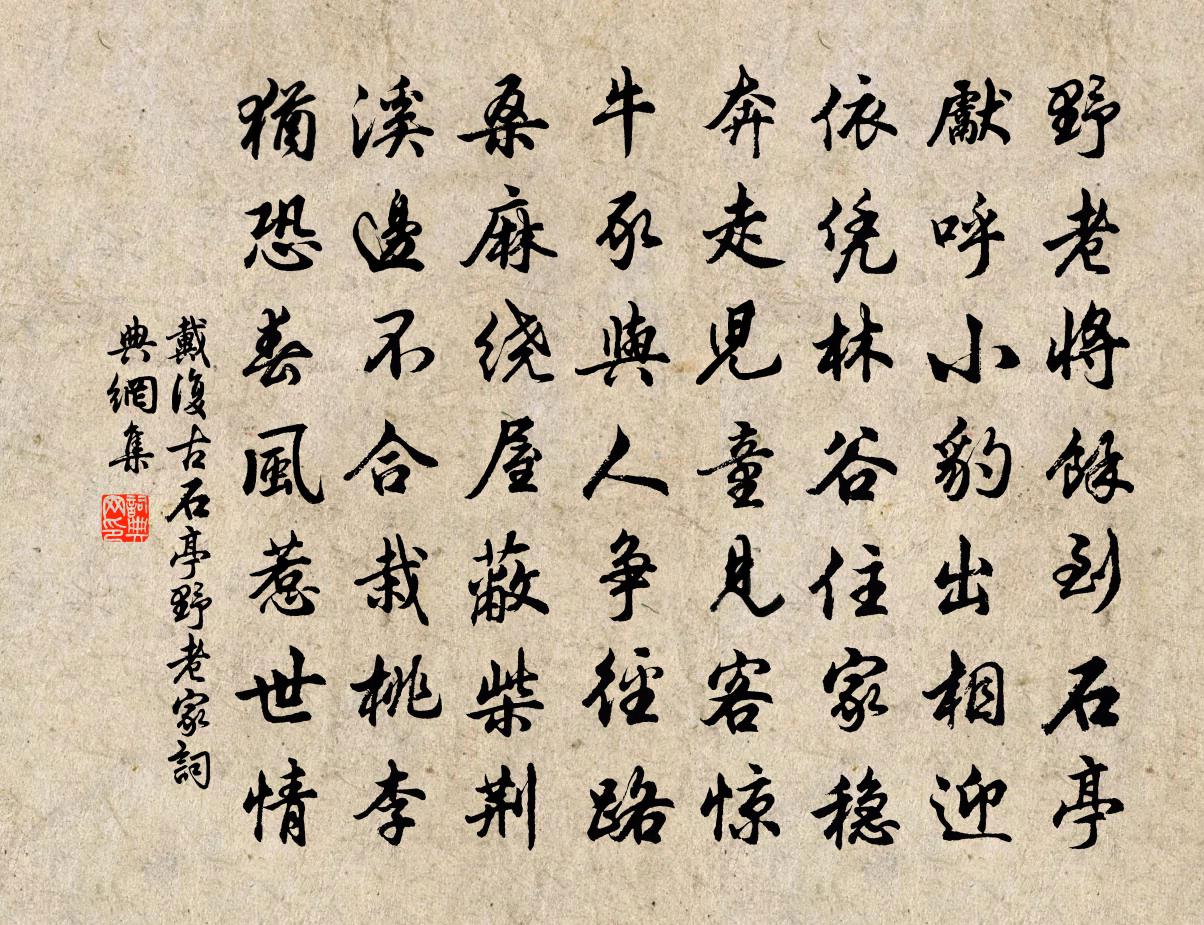 野老將餘到石亭
獻呼小豹出相迎
依凭林谷住家穏
奔走児童見客惊
牛豕與人爭徑路
桑麻绕屋蔽柴荆
溪邊不合栽桃李
猶恐春風惹世情
戴復古石亭野老家詞
典網集
詞典
网印